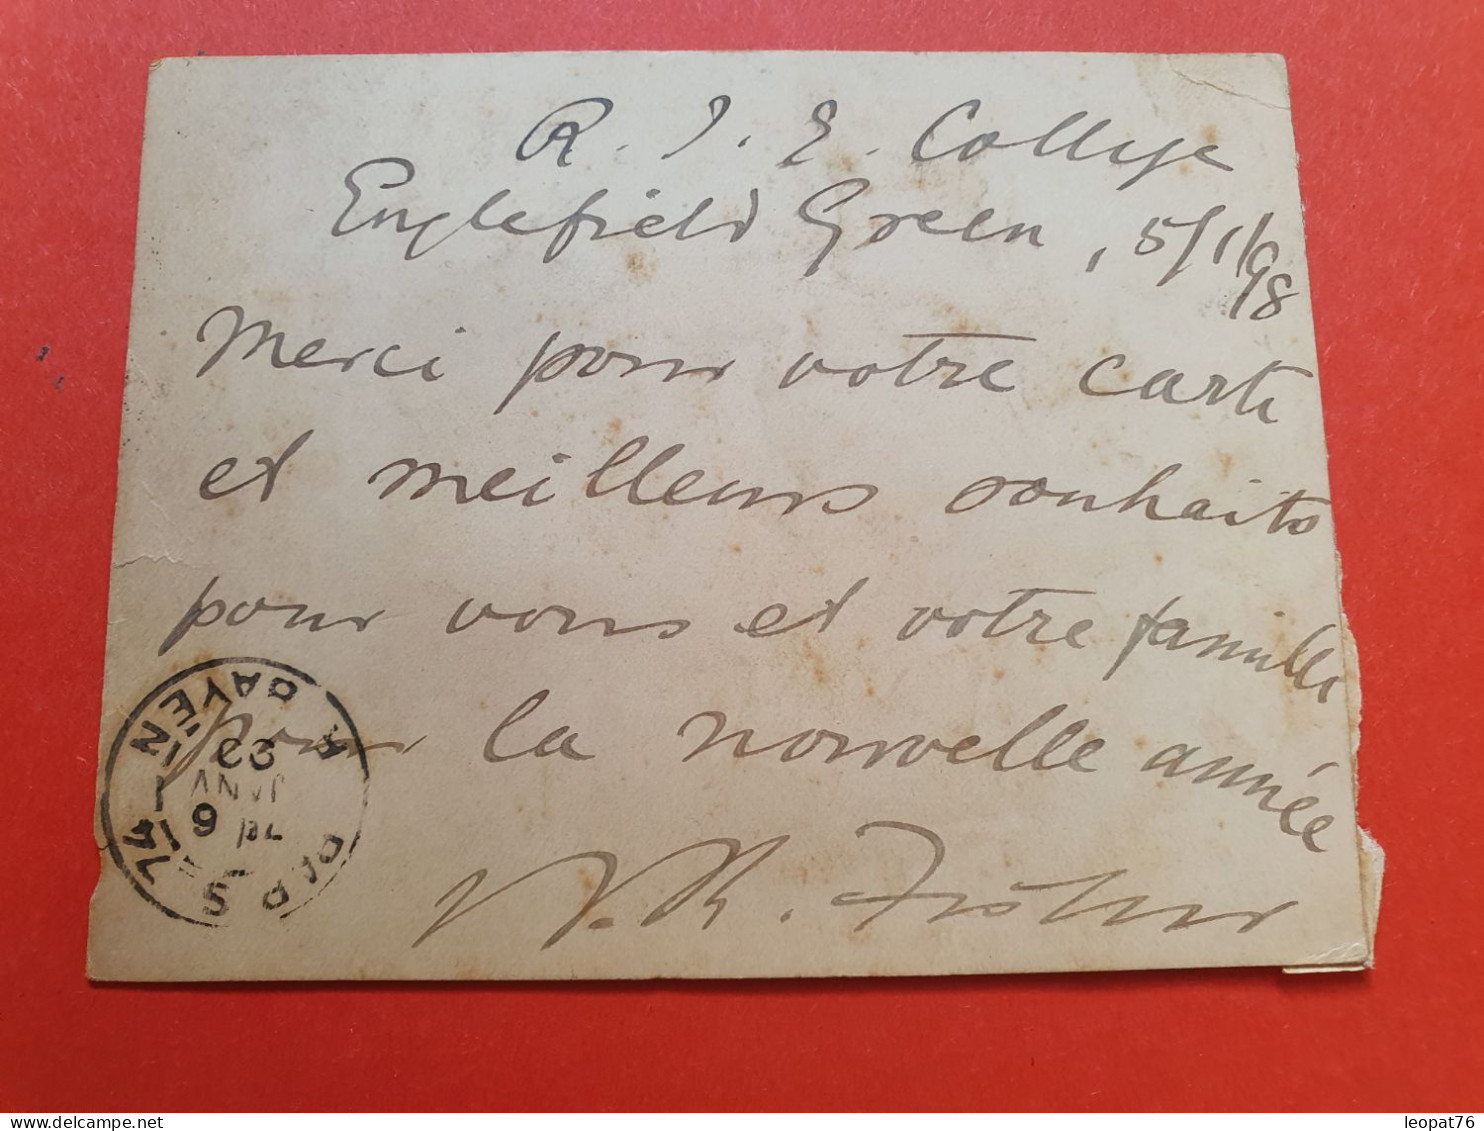 R. I. E. College
Englefield Green, 5/1/98
Merci pour votre carte
et meilleurs souhaits
pour vous et votre famille
pour la nouvelle année
W. R. Fisher
PARIS A BAYEN
74
6
JANV
leopat76
www.delcampe.net